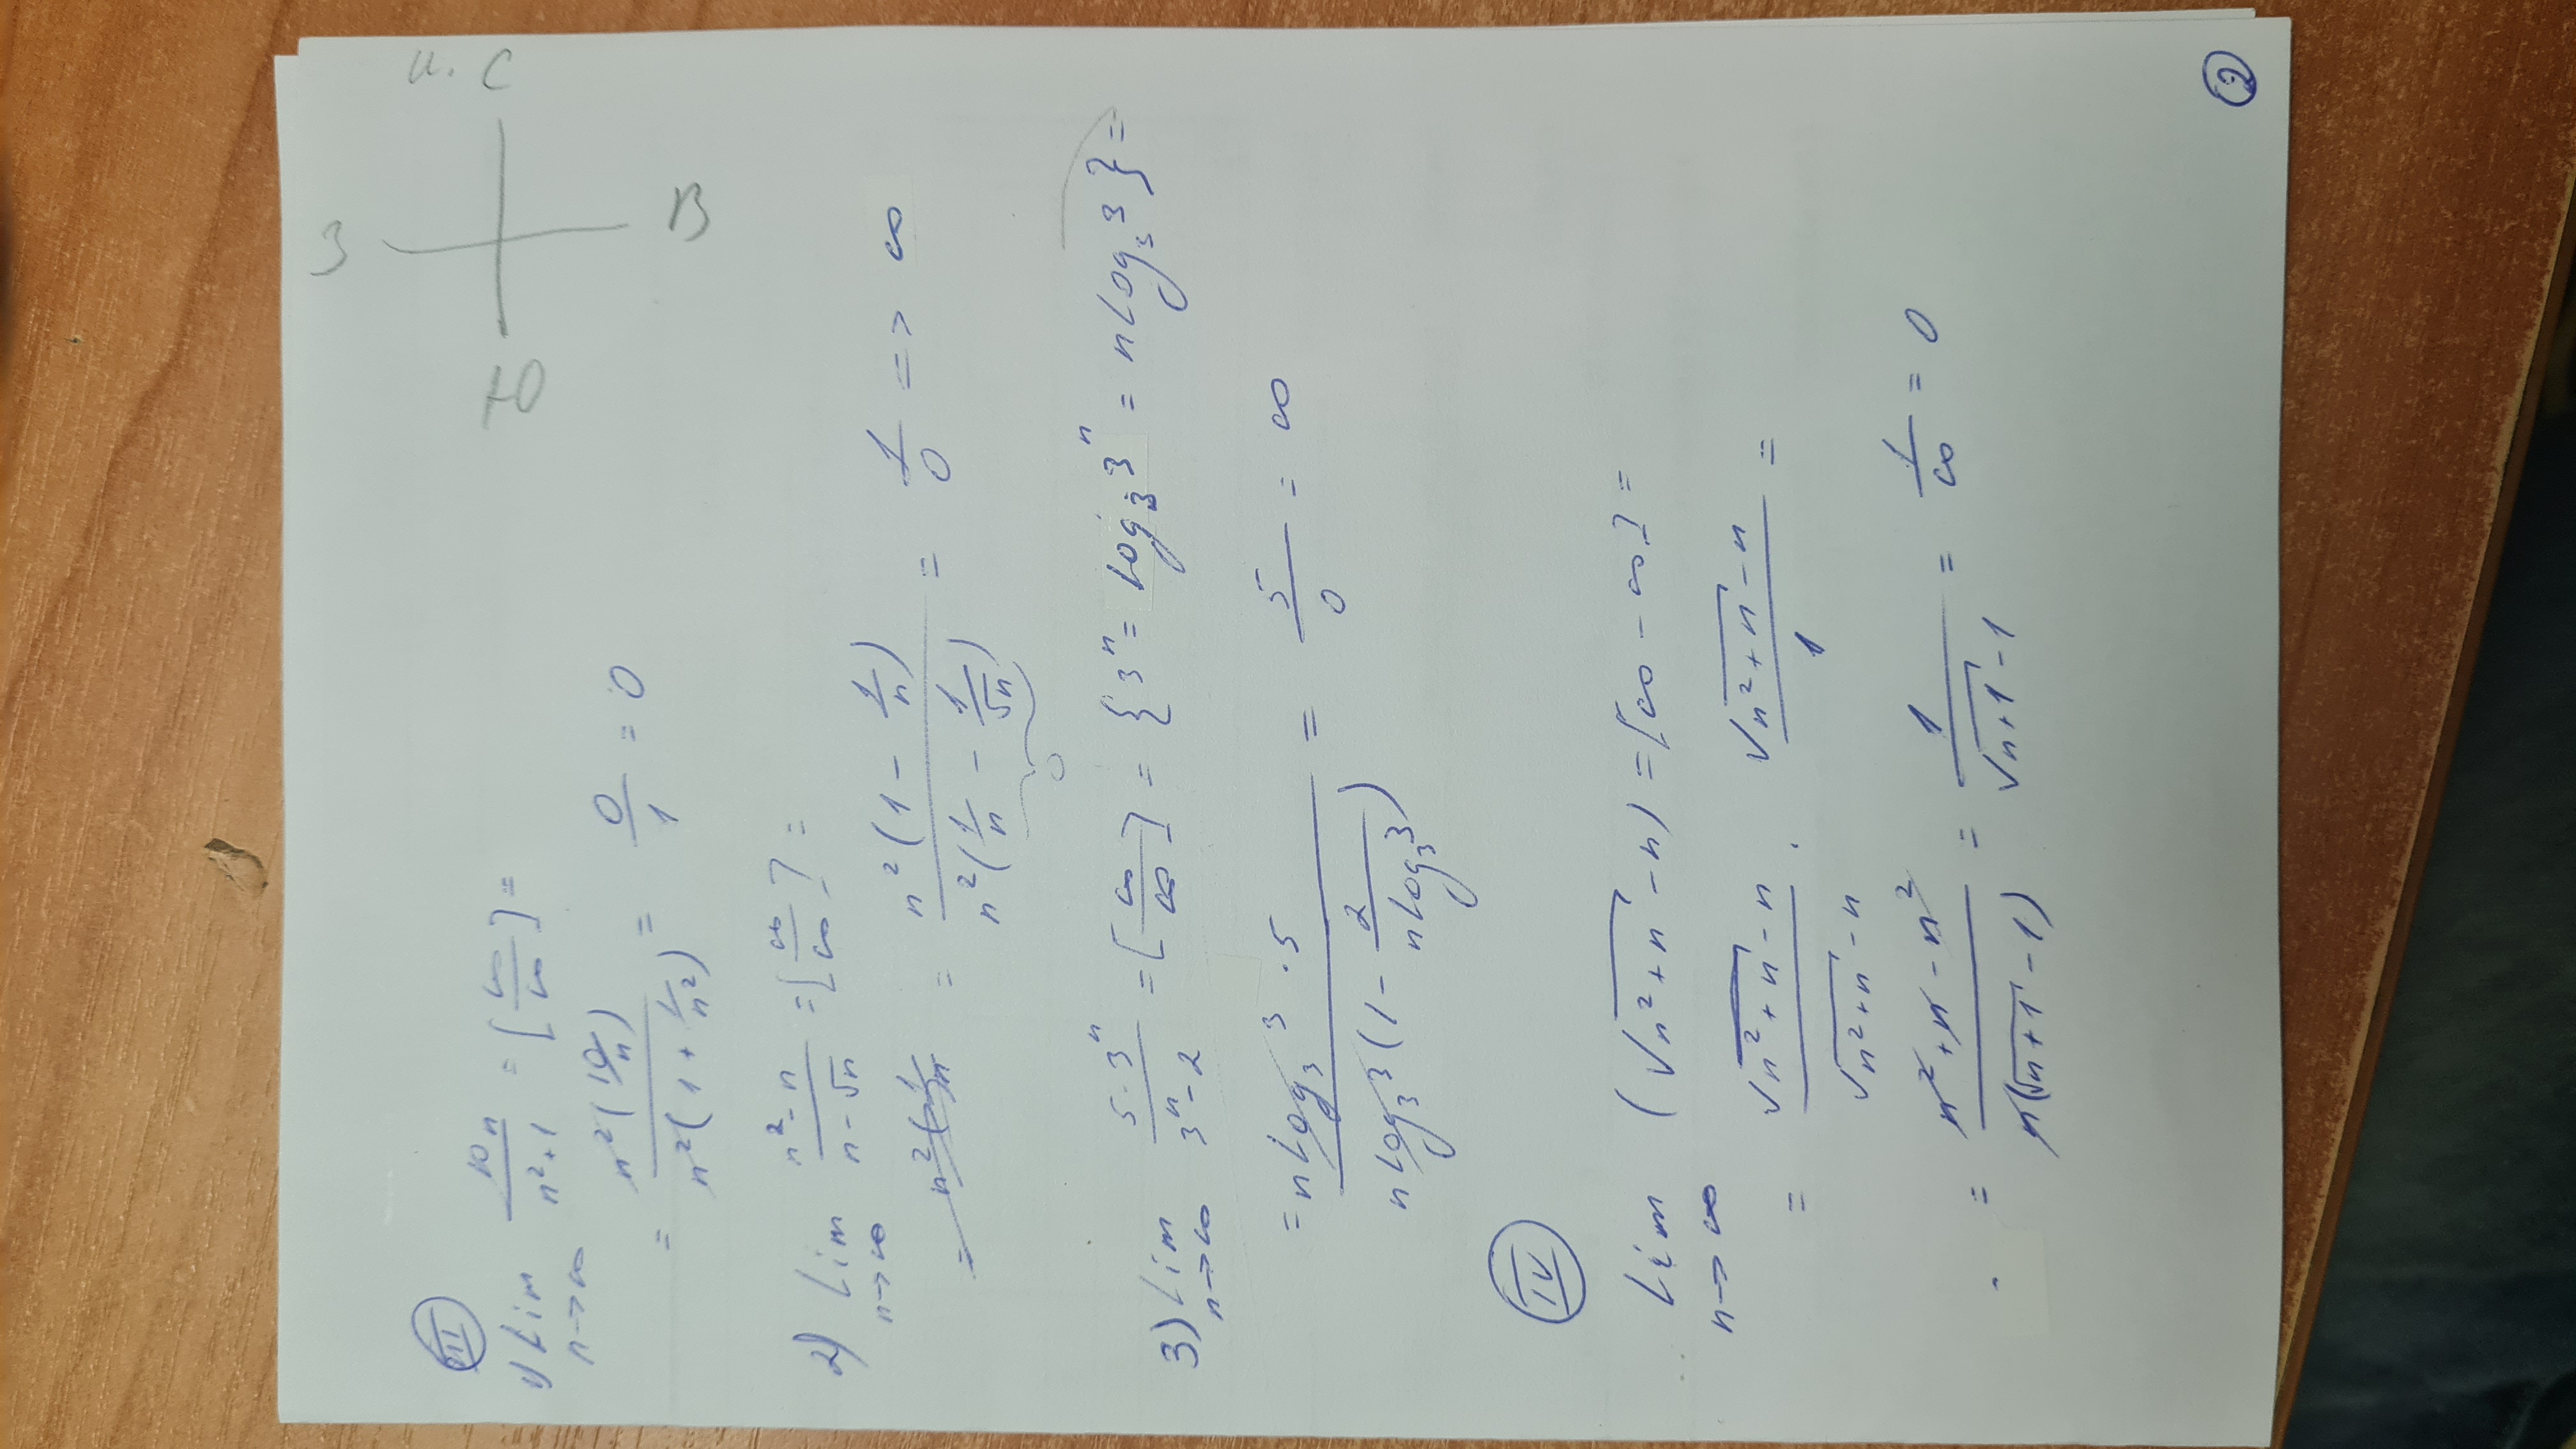 III
1) Lim n→∞ 10n/(n²+1) = [∞/∞] =
= n²(10/n)/(n²(1+1/n²)) = 0/1 = 0
2) Lim n→∞ (n²-n)/(n-√n) = [∞/∞] =
= n²(1-1/n)/(n²(1/n - 1/√n)) = 1/0 => ∞
0
3) Lim n→∞ 5·3ⁿ/(3ⁿ-2) = [∞/∞] = {3ⁿ = log₃3ⁿ = n log₃3} =
= n log₃3·5/(n log₃3(1 - 2/(n log₃3))) = 5/0 = ∞
IV
Lim n→∞ (√(n²+n) - n) = [∞-∞] =
= (√(n²+n) - n)/(√(n²+n) - n) · (√(n²+n) - n)/1 =
= (n²+n-n²)/(n(√(n+1) - 1)) = 1/(√(n+1) - 1) = 1/∞ = 0
2
З
И.С
Ю
В